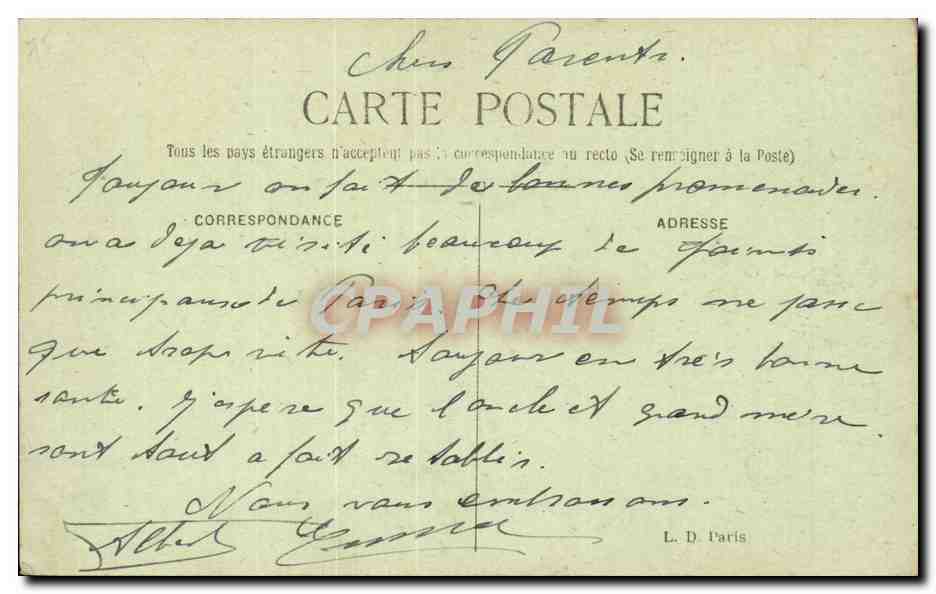 Chers Parents.
CARTE POSTALE
Tous les pays étrangers n'acceptent pas la correspondance au recto (Se renseigner à la Poste)
Toujour on fait de bonnes promenades.
CORRESPONDANCE
ADRESSE
on a deja visité beaucoup de points
principaux de Paris. Le temps ne passe
que trop vite. Toujour en très bonne
santé. J'espère que l'oncle et grand mère
sont tout a fait retablis.
Nous vous embrassons.
Albert
L. D. Paris
CPAPHIL